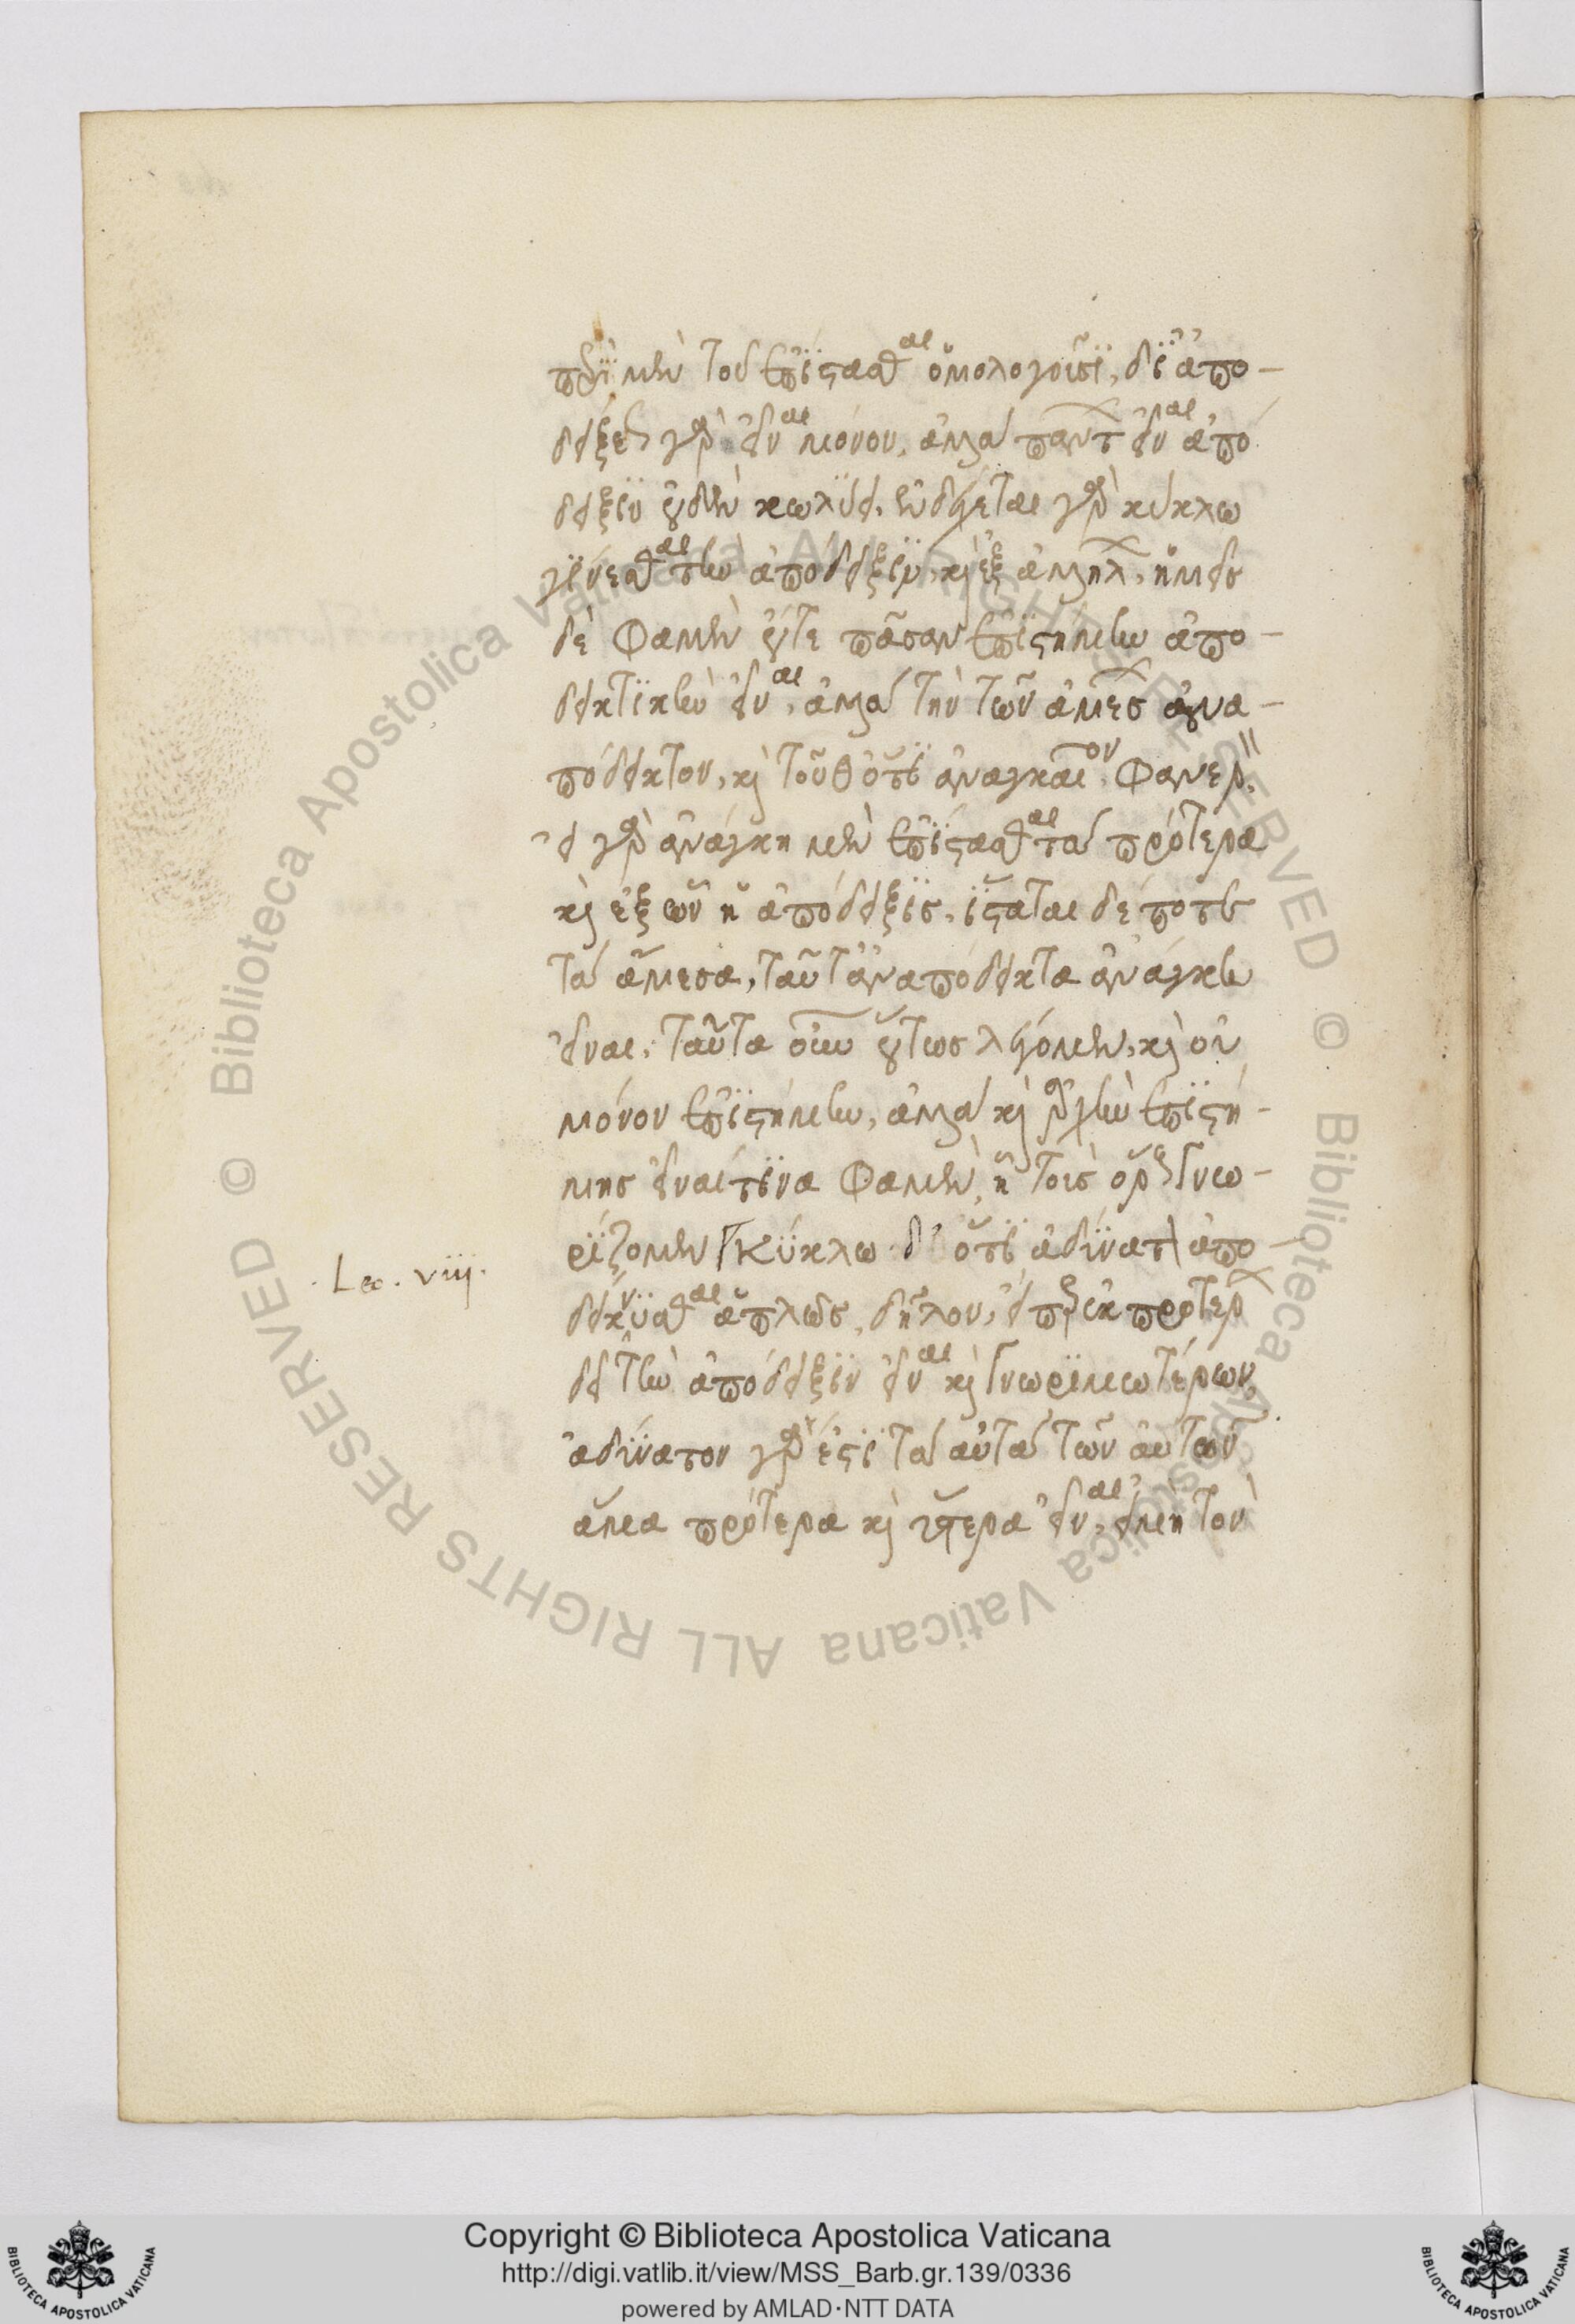 περὶ μὲν τοῦ ἐπίστασθαι ὁμολογοῦσι, δι' ἀπο-
δείξεως γὰρ εἶναι μόνον, ἀλλὰ πάντων εἶναι ἀπό
δειξιν οὐδὲν κωλύει. ἐνδέχεται γὰρ κύκλω
γίνεσθαι τὴν ἀπόδειξιν, καὶ ἐξ ἀλλήλων, ἡμεῖς
δέ φαμεν οὔτε πᾶσαν ἐπιστήμην ἀπο-
δεικτικὴν εἶναι, ἀλλὰ τὴν τῶν ἀμέσων ἀνα-
πόδεικτον, καὶ τοῦθ' ὅτι ἀναγκαῖον, φανερόν,
εἰ γὰρ ἀνάγκη μὲν ἐπίστασθαι τὰ πρότερα
καὶ ἐξ ὧν ἡ ἀπόδειξις, ἵσταται δέ ποτε
τὰ ἄμεσα, ταῦτ' ἀναπόδεικτα ἀνάγκη
εἶναι, ταῦτα οὖν οὕτως λέγομεν, καὶ οὐ
μόνον ἐπιστήμην, ἀλλὰ καὶ ἀρχὴν ἐπιστή-
μης εἶναί τινα φαμὲν, ἧ τοὺς ὅρους γνω-
ρίζομεν κύκλω δ' ὅτι ἀδύνατον ἀπο
δείκνυσθαι ἁπλῶς, δῆλον, εἴπερ ἐκ προτέρων
δεῖ τὴν ἀπόδειξιν εἶναι καὶ γνωριμωτέρων,
ἀδύνατον γάρ ἐστι τὰ αὐτὰ τῶν αὐτῶν
ἅμα πρότερα καὶ ὕστερα εἶναι, εἰ μὴ τὸν
Lec. viij.
Copyright © Biblioteca Apostolica Vaticana
http://digi.vatlib.it/view/MSS_Barb.gr.139/0336
powered by AMLAD·NTT DATA